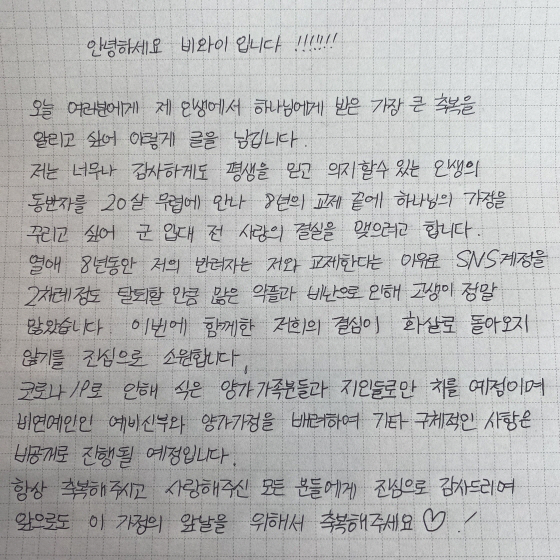 안녕하세요 비와이 입니다 !!!!!!!
오늘 여러분에게 제 인생에서 하나님에게 받은 가장 큰 축복을
알리고 싶어 이렇게 글을 남깁니다.
저는 너무나 감사하게도 평생을 믿고 의지할수 있는 인생의
동반자를 20살 무렵에 만나 8년의 교제 끝에 하나님의 가정을
꾸리고 싶어 군 입대 전 사랑의 결실을 맺으려고 합니다.
열애 8년동안 저의 반려자는 저와 교제한다는 이유로 SNS계정을
2차례정도 탈퇴할 만큼 많은 악플과 비난으로 인해 고생이 정말
많았습니다. 이번에 함께한 저희의 결심이 화살로 돌아오지
않기를 진심으로 소원합니다.
코로나19로 인해 식은 양가가족분들과 지인들로만 치를 예정이며
비연예인인 예비신부와 양가가정을 배려하여 기타 구체적인 사항은
비공개로 진행될 예정입니다.
항상 축복해주시고 사랑해주신 모든 분들에게 진심으로 감사드리며
앞으로도 이 가정의 앞날을 위해서 축복해주세요♡!